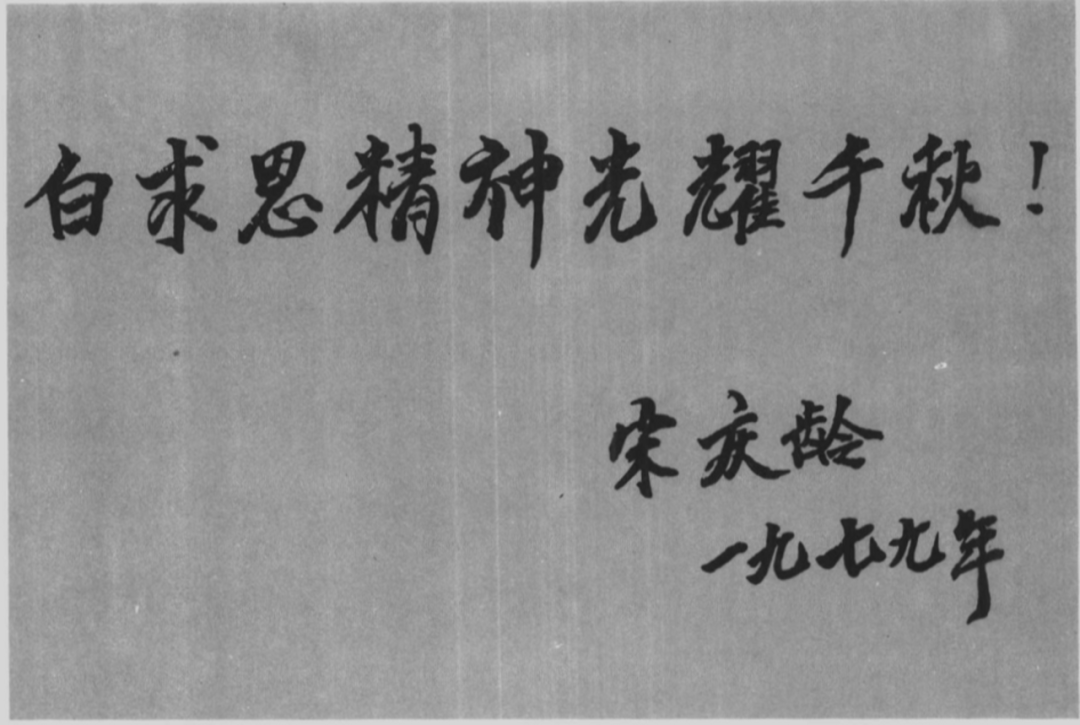 白求恩精神光耀千秋！
宋庆龄
一九七九年